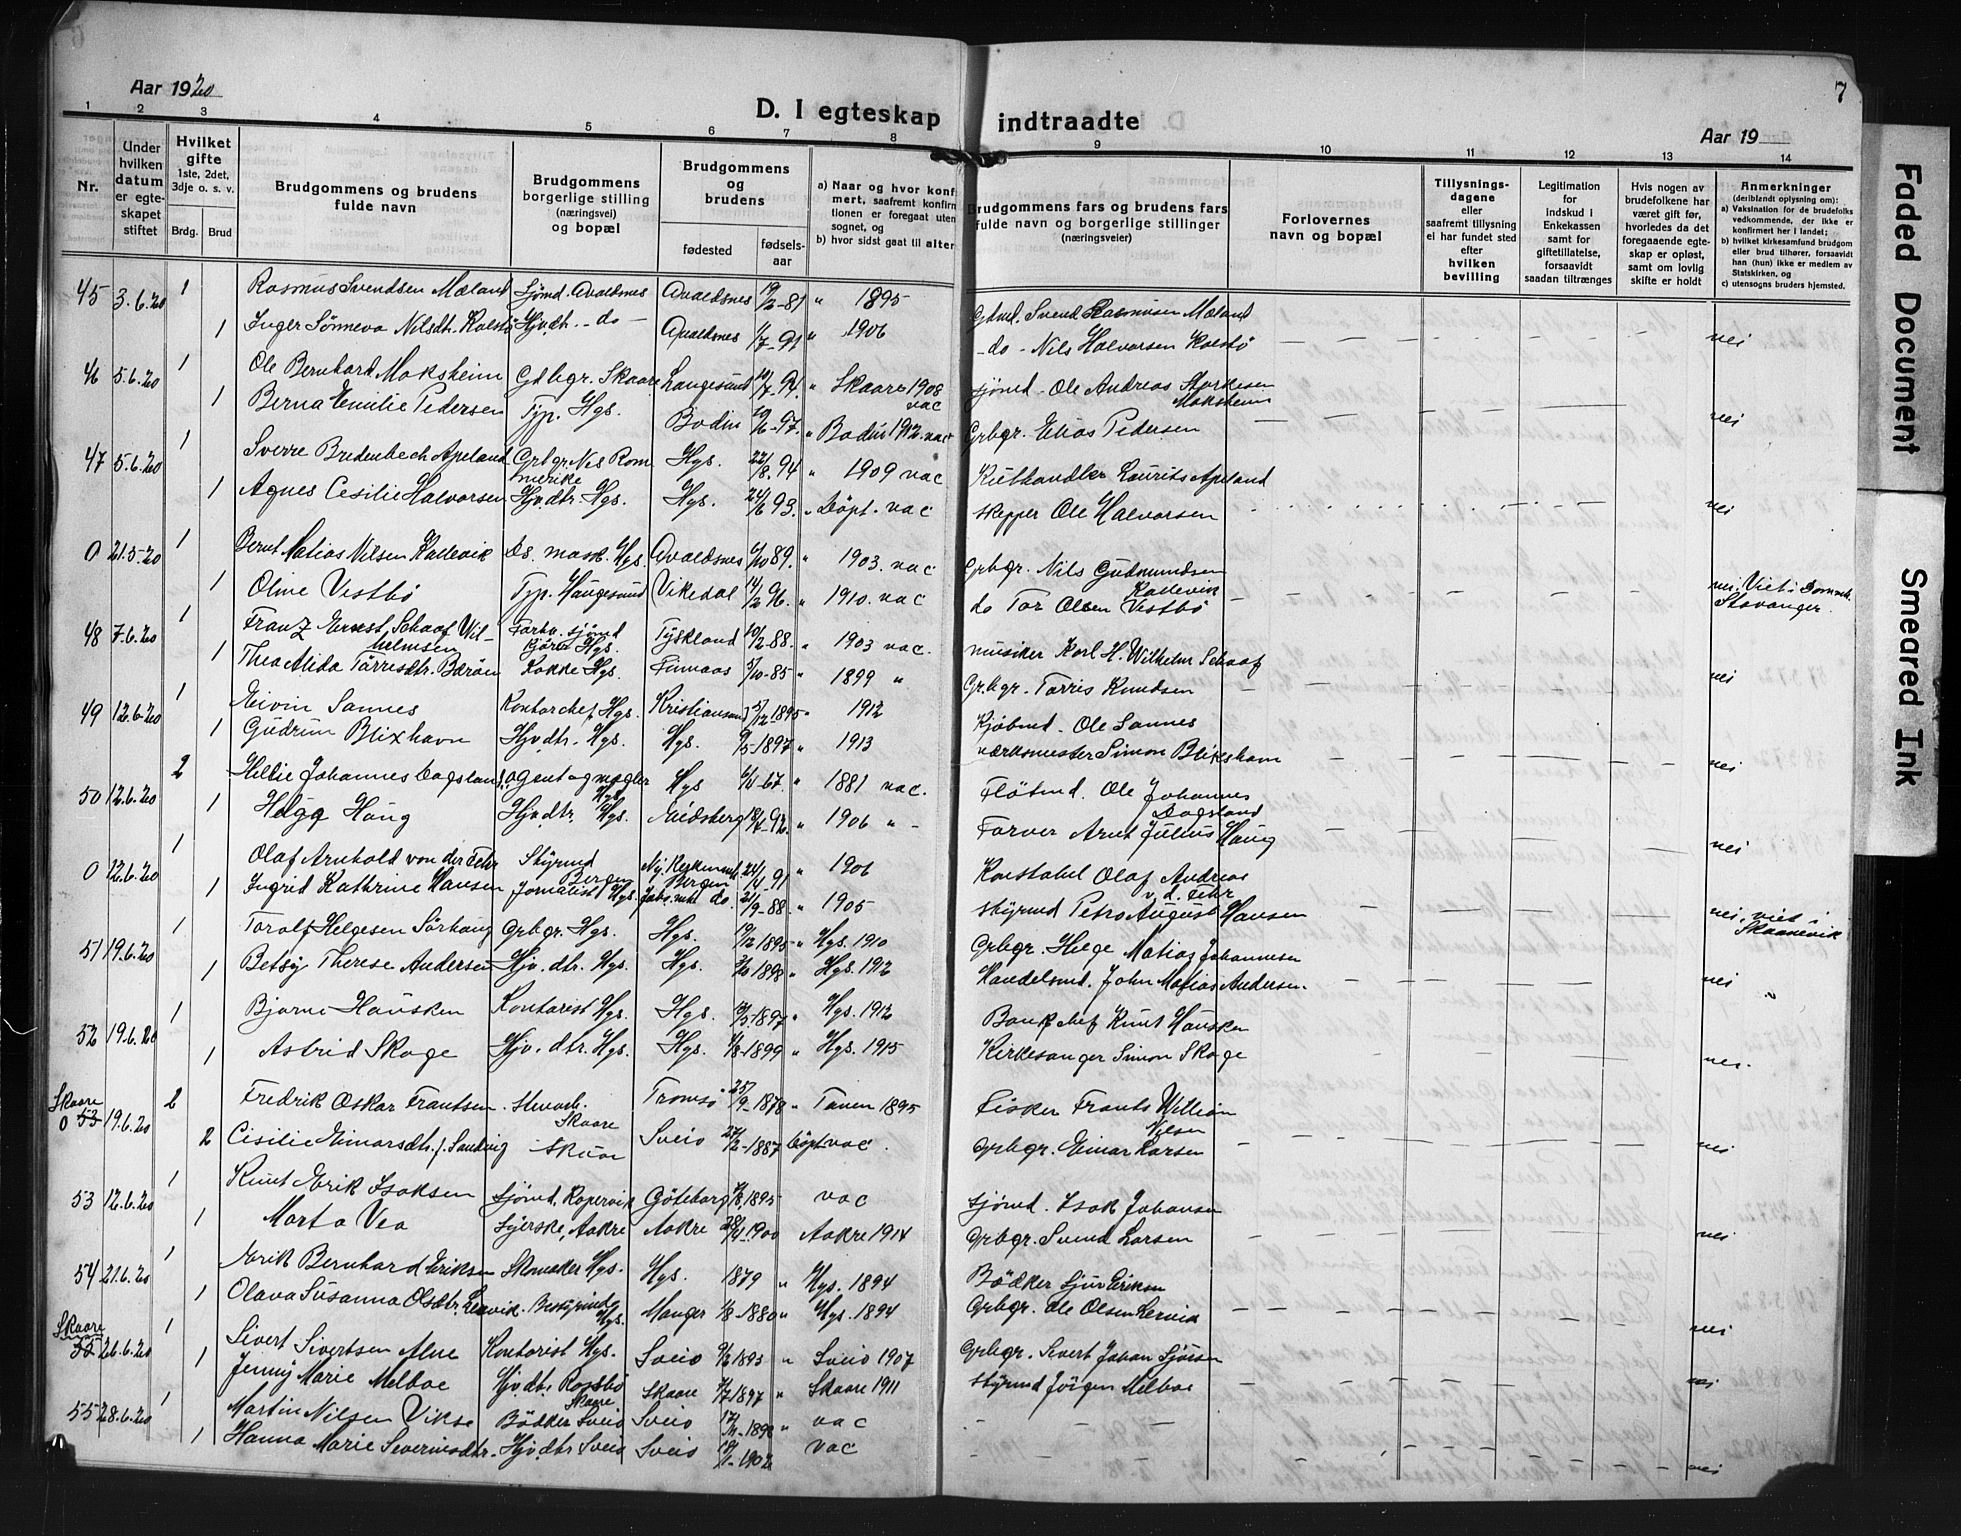 Aar 1920
D. I egteskap indtraadte
7
Aar 19
1 2 3 4 5 6 7 8 9 10 11 12 13 14
Nr.
Under hvilken datum er egteskapet stiftet
Hvilket gifte 1ste, 2det, 3dje o. s. v.
Brdg. Brud
Brudgommens og brudens fulde navn
Brudgommens borgerlige stilling (næringsvei) og bopæl
Brudgommens og brudens
fødested fødselsaar
a) Naar og hvor konfirmert, saafremt konfirmationen er foregaat uten sognet, og
b) hvor sidst gaat til alters
Brudgommens fars og brudens fars fulde navn og borgerlige stillinger (næringsveier)
Forlovernes navn og bopæl
Tillysningsdagene eller saafremt tillysning ei har fundet sted efter hvilken bevilling
Legitimation for indskud i Enkekassen samt for giftetillatelse, forsaavidt saadan tiltrænges
Hvis nogen av brudefolkene har været gift før, hvorledes da det foregaaende egteskap er opløst, samt om lovlig skifte er holdt
Anmerkninger (deriblandt oplysning om):
a) Vaksination for de brudefolks vedkommende, der ikke er konfirmert her i landet;
b) hvilket kirkesamfund brudgom eller brud tilhører, forsaavidt han (hun) ikke er medlem av Statskirken, og
c) utensogns bruders hjemsted.
45 3.6.20 1 Rasmus Svendsen Mæland Sjömd. Avaldsnes Avaldsnes 19/2-81 " 1895 Gdmd. Svend Rasmusen Mæland
1 Inger Sönneva Nilsdtr. Kolstö Hjvdtr. - do - Avaldsnes 1/7-91 " 1906 - do - Nils Halvorsen Kolstö nei
46 5.6.20 1 Ole Bernhard Moksheim Gdbgr. Skaare Langesund 10/7-91. " Skaare 1908 vac Sjömd. Ole Andreas Storkesen Moksheim
1 Berna Emilie Pedersen Typ. Hgs. Bodin 10/6-97. " Bodin 1912. vac Grbgr. Elias Pedersen nei
47 5.6.20 1 Sverre Bredenbech Apeland Grbgr Nes Rommerike Hgs. 22/8.94 " 1909 vac Kulhandler Laurits Apeland
1 Agnes Cesilie Halvorsen Hjvdtr. Hgs. Hgs. 24/6 93. " Döpt. vac Skipper Ole Halvorsen nei
0 21.5-20 1 Bernt Matias Nilsen Kallevik Ds. mask. Hgs. Avaldsnes 6/10 89. " 1903. vac Grbgr. Nils Gudmundsen Kallevik
1 Oline Vestbö Typ. Haugesund Vikedal 14/12 96. " 1910. vac do Tor Olsen Vestbö nei, Viet i Domk. Stavanger.
48 7.6.20 1 Franz Ernst Schaaf Wilhelmsen Forhv. sjömd Hgs. Tyskland 10/2-88. " 1903 vac. Musiker Karl H. Wilhelm Schaaf
1 Thea Alida Törresdtr. Baröen Kokke Hgs. Finnaas 5/10-85 " 1899 " Gr.bgr. Törris Knudsen nei
49 12.6.20 1 Eivin Sannes Kontorchef Hgs. Kristiansand 5/12 1895 " 1912 Kjöbmd. Ole Sannes
1 Gudrun Blixhavn Hjvdtr. Hgs. Hgs. 9/5-1897 " 1913 Værksmester Simon Blikshavn nei
50 12.6.20 2 Hellie Johannes Dagsland agent og mægler Hgs. Hgs 6/4-67 " 1881 vac. Flötmd. Ole Johannes Dagsland
1 Helga Haug Hjvdtr. Hgs. Meidsberg 18/4-92. " 1906 " Farver Arnt Julius Haug nei
0 12.6.20 1 Olaf Arnhold von der Fehr Styrmd Bergen Ny. Korskirk Bergen 24/4-91 " 1906 Konstabel Olaf Andreas v. d. Fehr
1 Ingrid Kathrine Hansen Jornalist Hgs. do. 21/9-88. " 1905 Styrmd Petro August Hansen nei, viet i Skaanevik
51 19.6.20 1 Torolf Helgesen Sörhaug Grbgr. Hgs. Hgs. 19/12 1895 " Hgs. 1910 Grbgr. Helge Matias Johannesen
1 Betsy Therese Andersen Hjv. dtr. Hgs. Hgs. 3/10 1898 " Hgs. 1912 Handelsmd. John Matias Andersen. nei
52 19.6.20 1 Bjarne Hausken Kontorist Hgs. Hgs. 13/5-1897 " Hgs. 1912 Bankchef Knut Hausken
1 Astrid Skage Hjv. dtr. Hgs. Hgs. 4/8-1899 " Hgs. 1915 Kirkesanger Simon Skage nei.
Skaare 0 53 19.6.20 2 Fredrik Oskar Frantsen. Skaare Tromsö 25/9-1878 " Tanen 1895 Fisker Frants William Nilsen
2 Cisilie Einarsdtr. f. Sandvig Skaar Sveio 27/2-1887 Döpt vac. Grbgr. Einar Larsen nei
53 12.6.20 1 Knut Erik Isaksen Sjömd. Kopervik Göteborg 7/8.1895 vac Sjömd. Isak Johansen
1 Marta Vea Syerske, Aakre Aakre 28/4.1900 Aakre 1914 Grbgr. Svend Larsen nei
54 21.6.20 1 Erik Bernhard Eriksen Skomaker Hgs. Hgs. 1879 " Hgs. 1894 Bödker Sjur Erikson
1 Olava Susanna Olsdtr. Leirvik. Bestyrinde Hgs. Manger 1/8-1880 " Hgs. 1894 Grbgr. Ole Olsen Lervik nei
Skaare 55 26.6.20 1 Sivert Sivertsen Alne Kontorist Hgs. Sveio 9/2 1893 " Sveio 1907 Grbgr. Severt Johan Sjursen
1 Jenny Marie Melboe Hjvdtr. Rossebö Skaare Skaare 7/7 1897 " Skaare 1911 Styrmd Jörgen Melboe nei
55 28.6.20 1 Martin Nilsen Vikse Bödker Sveio Sveio 17/11-1898 " vac
1 Hanna Marie Severinsdtr. Hjvdtr Sveio Sveio 19/1-1902 vac nei
Faded Document
Smeared Ink